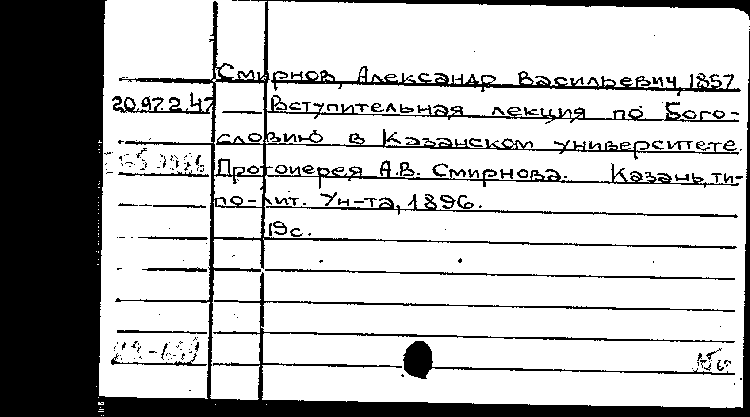 Смирнов, Александр Васильевич, 1857
20.97.2.47 Вступительная лекция по Бого-
словию в Казанском университете.
Протоиерея А.В. Смирнова. Казань, ти-
по-лит. Ун-та, 1896.
19с.